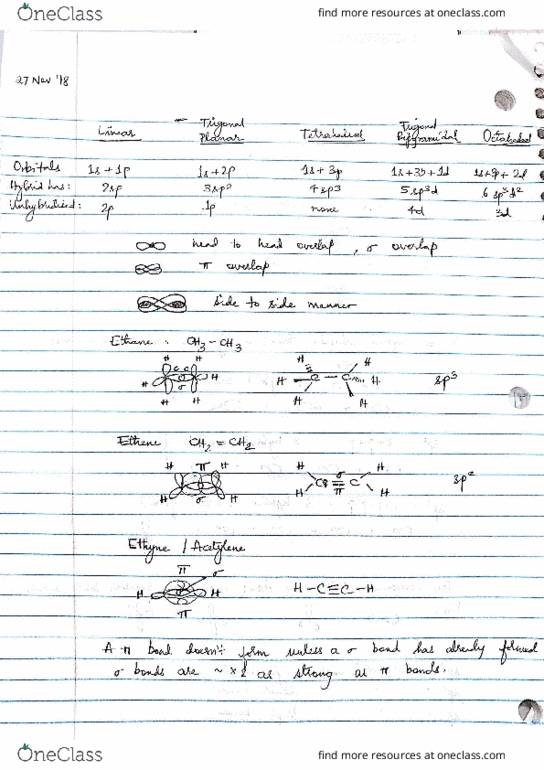 OneClass find more resources at oneclass.com
27 Nov '18
Linear Trigonal Planar Tetrahedral Trigonal Octahedral
Orbitals 1s + 1p 1s + 2p 1s + 3p 1s + 3p + 1d 1s + 3p + 2d
Hybrid has: 2sp 3sp² 4sp3 5sp³d 6 sp³d²
Unhybridized: 2p 1p none 4d 3d
head to head overlap, σ overlap
π overlap
side to side manner
Ethane : CH3 – CH3
H H H H
H σ H H C C H sp³
H H H H
Ethene CH2 = CH2
H π H H σ H
H σ H H C π C H sp²
Ethyne / Acetylene
π σ
H H H – C ≡ C – H
π
A π bond doesn't form unless a σ bond has already formed
σ bonds are ~ x2 as strong as π bonds.
OneClass find more resources at oneclass.com